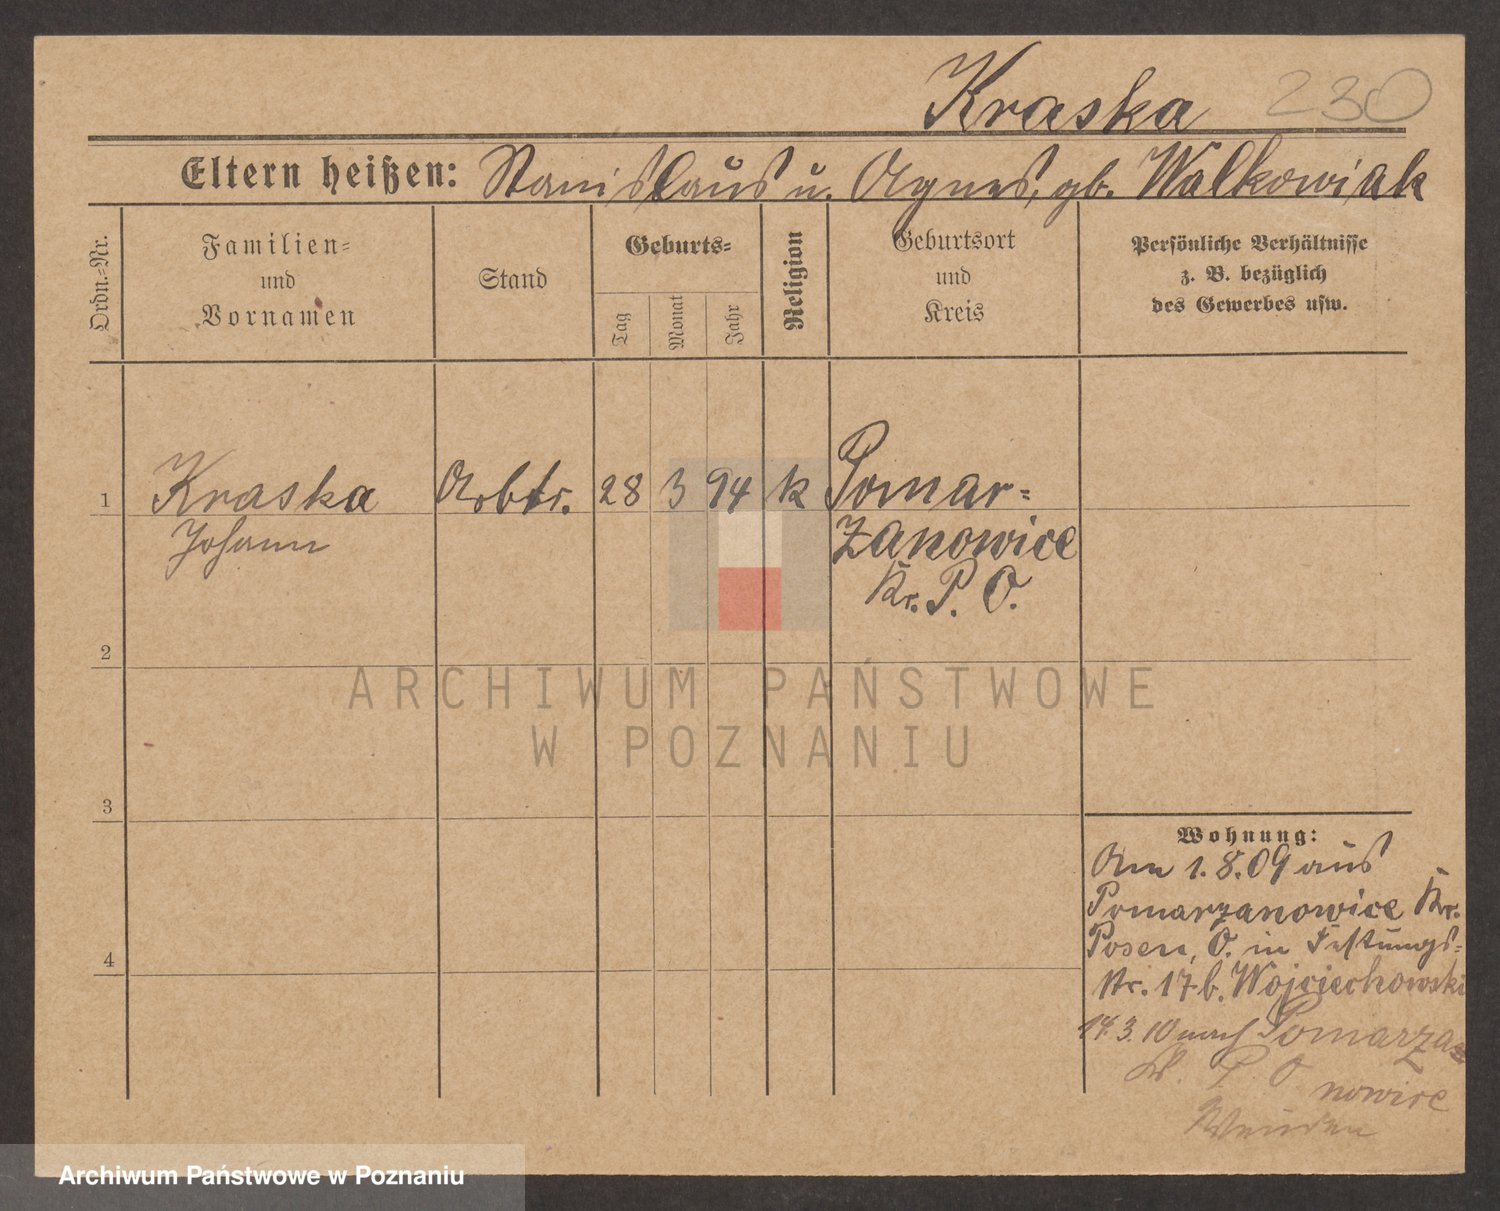 Kraska 230
Eltern heißen: Stanislaus u. Agnes, gb. Walkowiak
Ordn.=Nr.
Familien=
und
Vornamen
Stand
Geburts=
Tag
Monat
Jahr
Religion
Geburtsort
und
Kreis
Persönliche Verhältnisse
z. B. bezüglich
des Gewerbes usw.
1 Kraska Arbtr. 28 3 94 k Pomar=
Johann zanowice
Kr. P. O.
2
3
4
ARCHIWUM PAŃSTWOWE
W POZNANIU
Wohnung:
Am 1.8.09 aus
Pomarzanowice Kr.
Posen, O. in Festungs=
str. 17 b. Wojciechowski
14.3.10 nach Pomarza=
Kr. P. O nowice
Wenden
Archiwum Państwowe w Poznaniu